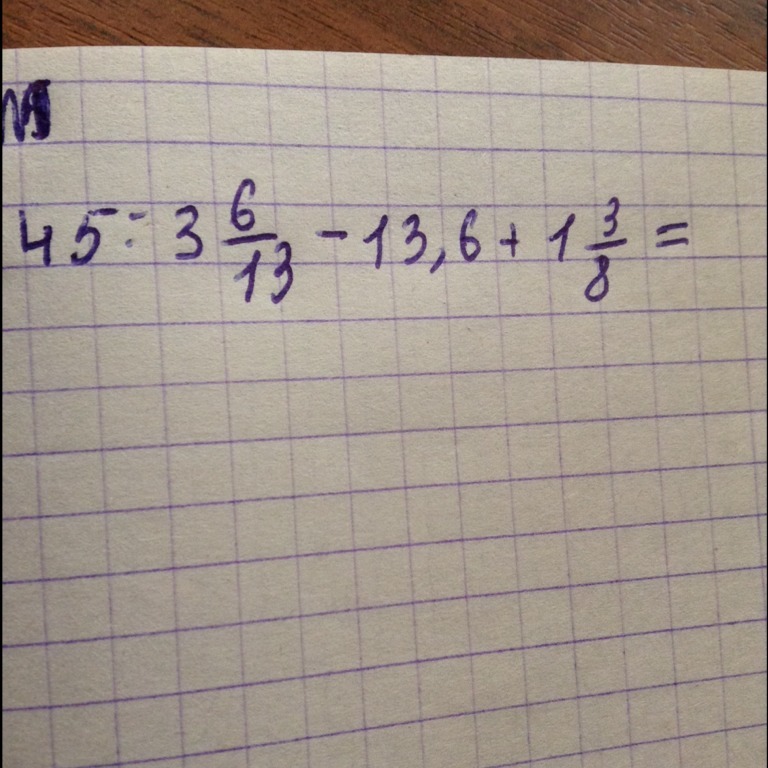 45 : 3 6/13 - 13,6 + 1 3/8 =